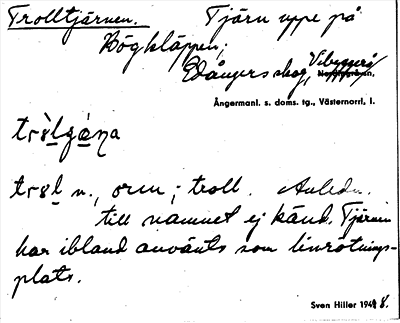 Trolltjärnen. Tjärn uppe på
Högkläppen,
Edångers skog, Vibyggerå
Ångermanl. s. doms. tg., Västernorrl. l.
trɔ̀lgɑ́na
troll n., orm; troll. Anledn.
till namnet ej känd. Tjärnen
har ibland använts som linrötnings-
plats.
Sven Hiller 1948.